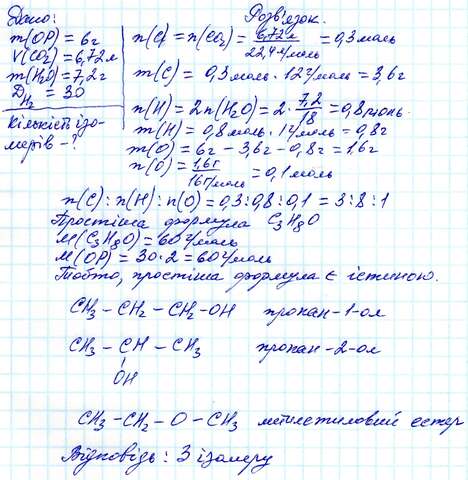 Дано:
m(ОР) = 6г
V(CO2) = 6,72л
m(H2O) = 7,2г
DH2 = 30
Кількість ізо-
мерів - ?
Розв'язок.
n(C) = n(CO2) = 6,72л / 22,4 л/моль = 0,3 моль
m(C) = 0,3 моль · 12 г/моль = 3,6г
n(H) = 2n(H2O) = 2 · 7,2 / 18 = 0,8 моль.
m(H) = 0,8 моль · 1 г/моль = 0,8г
m(O) = 6г - 3,6г - 0,8г = 1,6г
n(O) = 1,6г / 16 г/моль = 0,1 моль
n(C) : n(H) : n(O) = 0,3 : 0,8 : 0,1 = 3 : 8 : 1
Простіша формула C3H8O
M(C3H8O) = 60 г/моль
M(ОР) = 30 · 2 = 60 г/моль
Тобто, простіша формула є істиною.
CH3 - CH2 - CH2 - OH пропан-1-ол
CH3 - CH - CH3 пропан-2-ол
OH
CH3 - CH2 - O - CH3 метилетиловий естер
Відповідь: 3 ізомеру